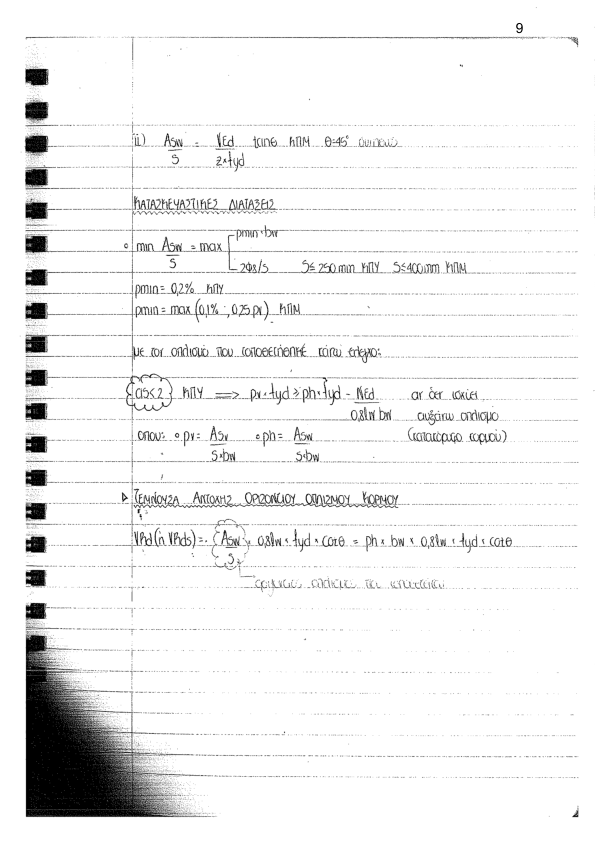 9
ii) Asw/s = VEd/(z×fyd) tanθ ΚΠΜ θ=45° συνήθως
ΚΑΤΑΣΚΕΥΑΣΤΙΚΕΣ ΔΙΑΤΑΞΕΙΣ
ρmin·bw
o min Asw/s = max
2Φ8/s S≤250mm ΚΠΥ S≤400mm ΚΠΜ
ρmin = 0,2% ΚΠΥ
ρmin = max (0,1% ; 0,25 ρv) ΚΠΜ
με τον οπλισμό που τοποθετήθηκε κάνω έλεγχο:
{as<2} ΚΠΥ ⟹ ρv·fyd ≥ ρh·fyd - NEd/(0,8lw bw) αν δεν ισχύει
αυξάνω οπλισμό
όπου: o ρv = Asv/(s·bw) o ρh = Asw/(s·bw) (κατακόρυφο κορμού)
▷ ΤΕΜΝΟΥΣΑ ΑΝΤΟΧΗΣ ΟΡΙΖΟΝΤΙΟΥ ΟΠΛΙΣΜΟΥ ΚΟΡΜΟΥ
VRd (ή VRds) = (Asw/s) × 0,8lw × fyd × cotθ = ρh × bw × 0,8lw × fyd × cotθ
οριζόντιος οπλισμός που